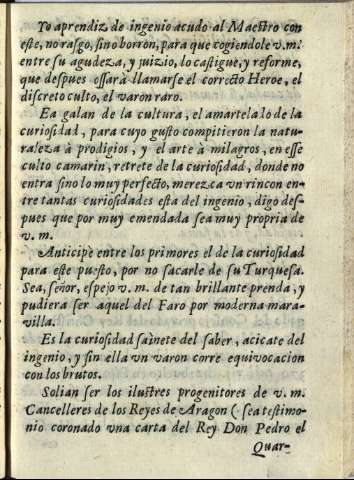 Yo aprendiz de ingenio acudo al Maestro con
este, no rasgo, sino borron, para que cogiendole v.m.
entre su agudeza, y juizio, lo castigue, y reforme,
que despues ossarà llamarse el correcto Heroe, el
discreto culto, el varon raro.
Ea galan de la cultura, el amartelado de la
curiosidad, para cuyo gusto compitieron la natu-
raleza à prodigios, y el arte à milagros, en esse
culto camarin, retrete de la curiosidad, donde no
entra sino lo muy perfecto, merezca vn rincon en-
tre tantas curiosidades esta del ingenio, digo des-
pues que por muy emendada sea muy propria de
v. m.
Anticipè entre los primores el de la curiosidad
para este puesto, por no sacarle de su Turquesa.
Sea, señor, espejo v. m. de tan brillante prenda, y
pudiera ser aquel del Faro por moderna mara-
villa.
Es la curiosidad sainete del saber, acicate del
ingenio, y sin ella vn varon corre equivocacion
con los brutos.
Solian ser los ilustres progenitores de v. m.
Cancelleres de los Reyes de Aragon (sea testimo-
nio coronado vna carta del Rey Don Pedro el
Quar-